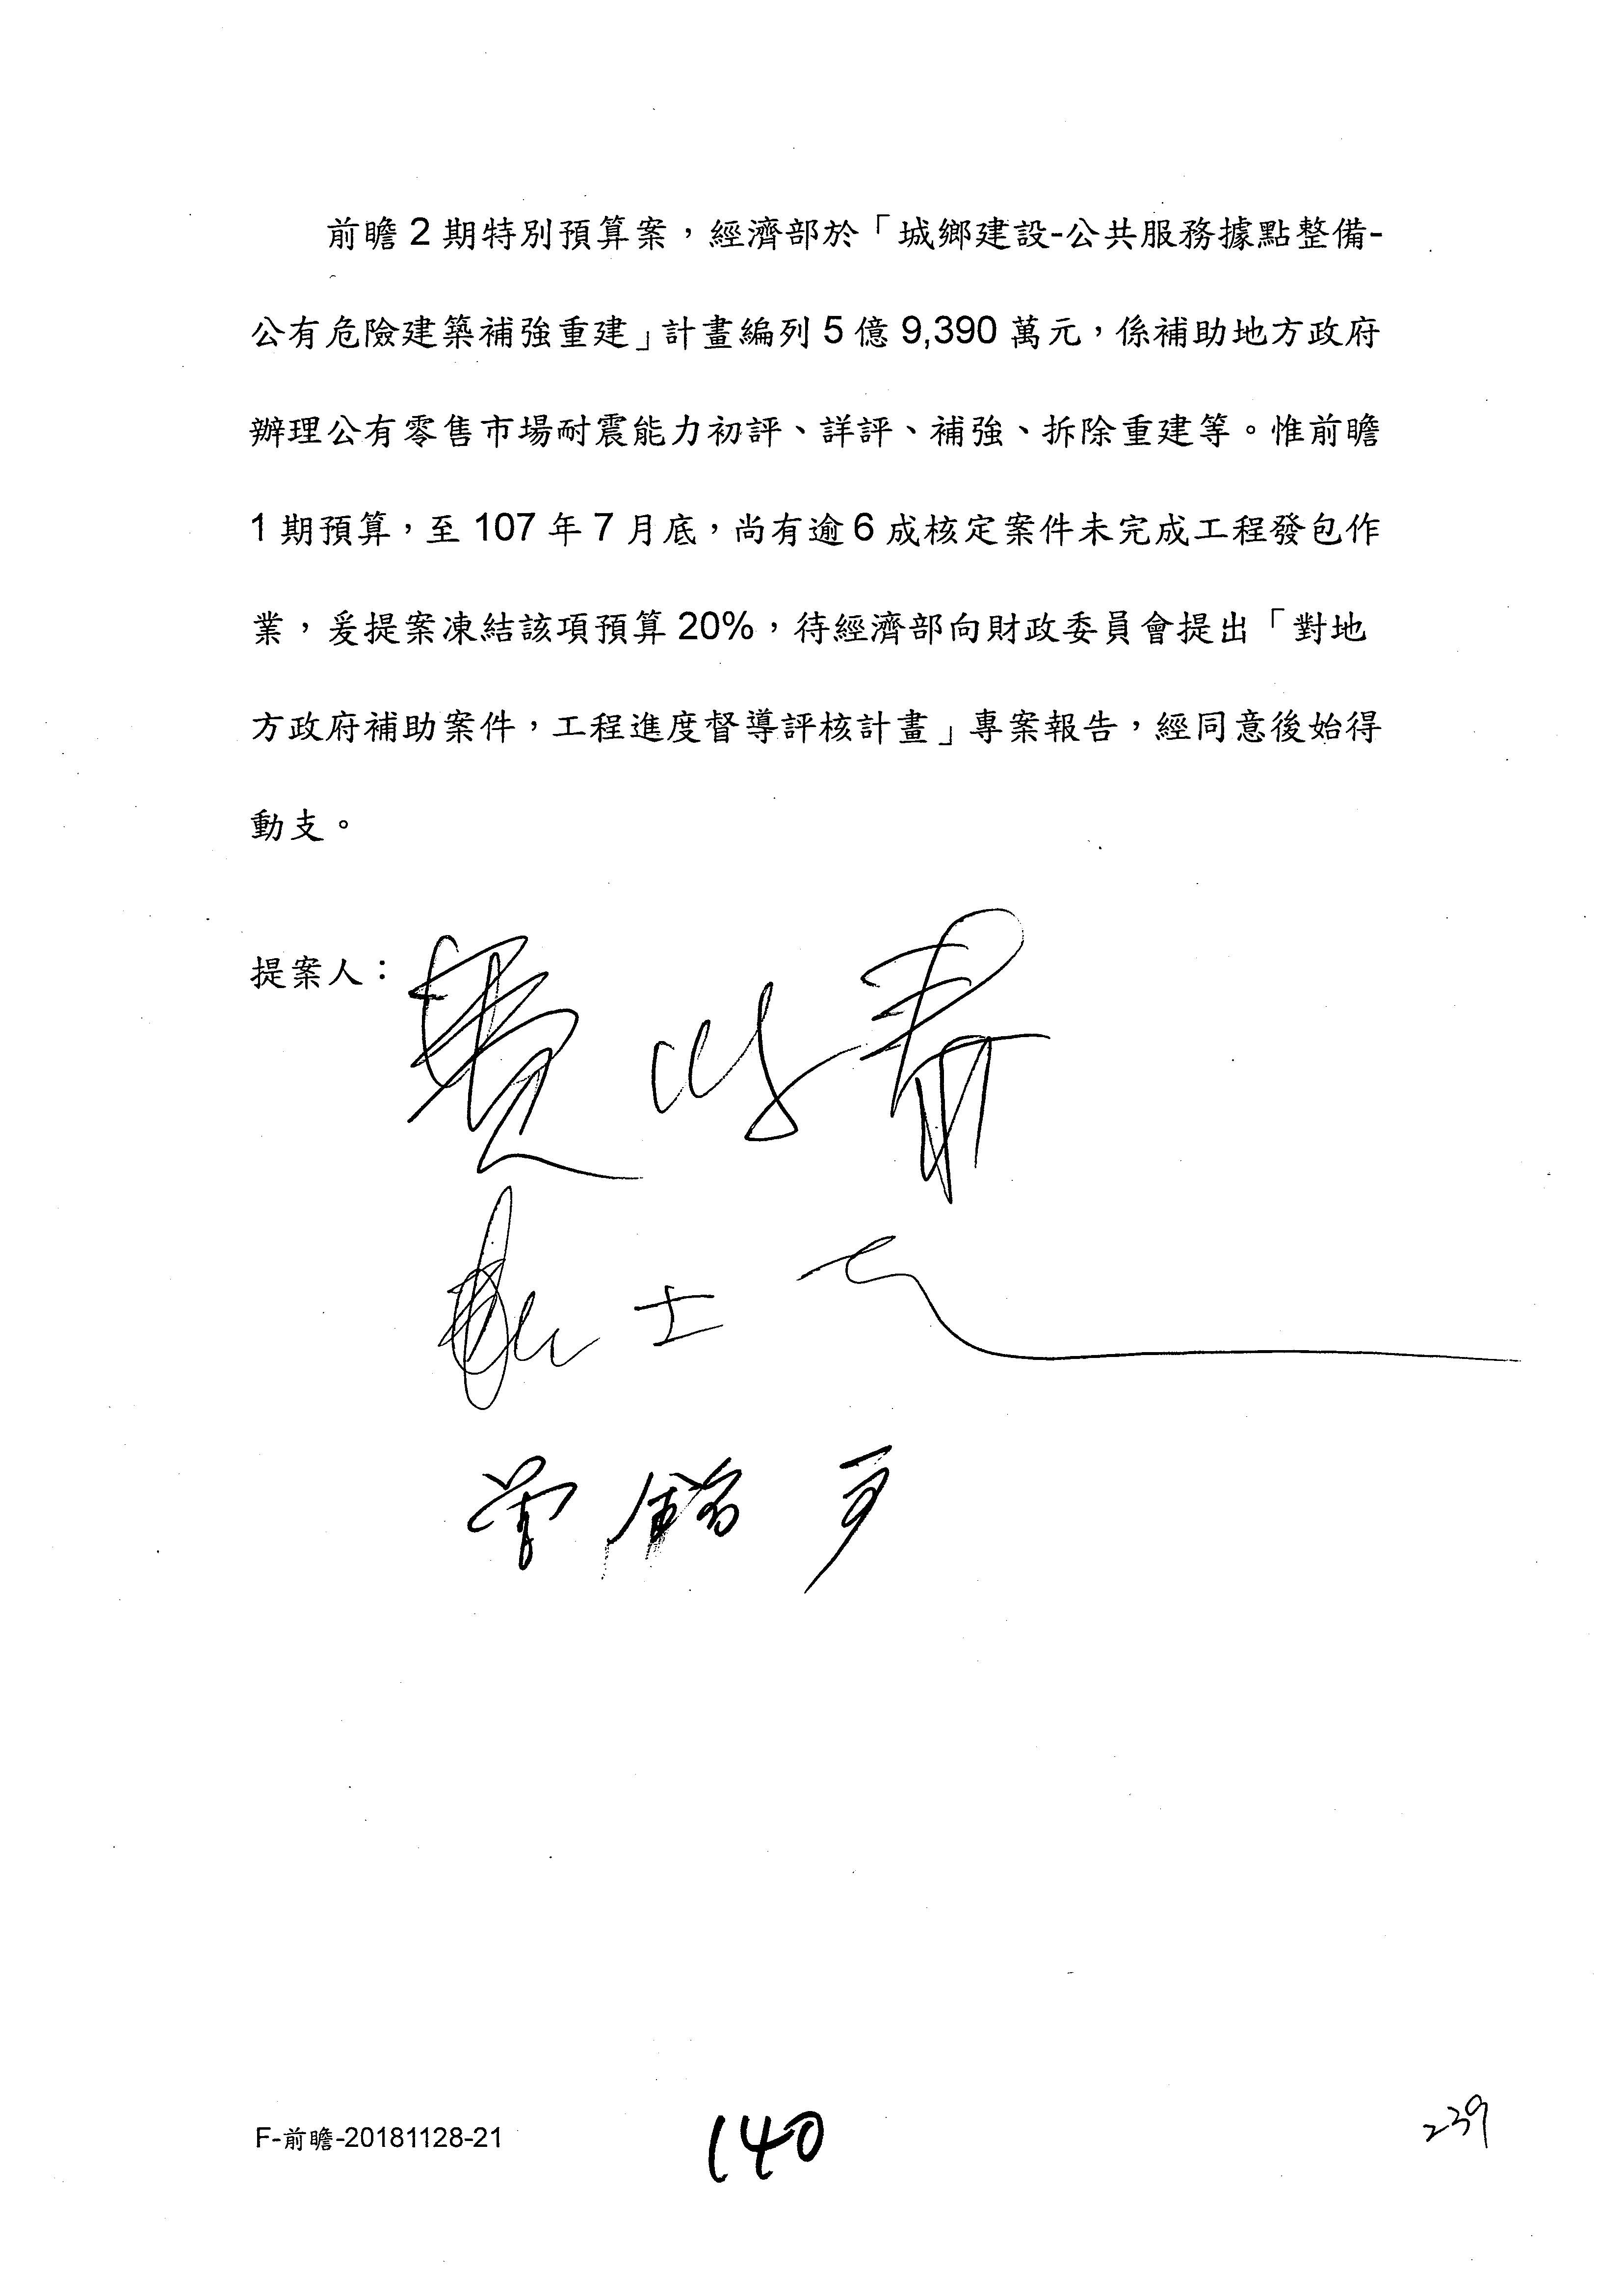 前瞻 2 期特別預算案，經濟部於「城鄉建設-公共服務據點整備-
公有危險建築補強重建」計畫編列 5 億 9,390 萬元，係補助地方政府
辦理公有零售市場耐震能力初評、詳評、補強、拆除重建等。惟前瞻
1 期預算，至 107 年 7 月底，尚有逾 6 成核定案件未完成工程發包作
業，爰提案凍結該項預算 20%，待經濟部向財政委員會提出「對地
方政府補助案件，工程進度督導評核計畫」專案報告，經同意後始得
動支。
提案人：
F-前瞻-20181128-21
140
239